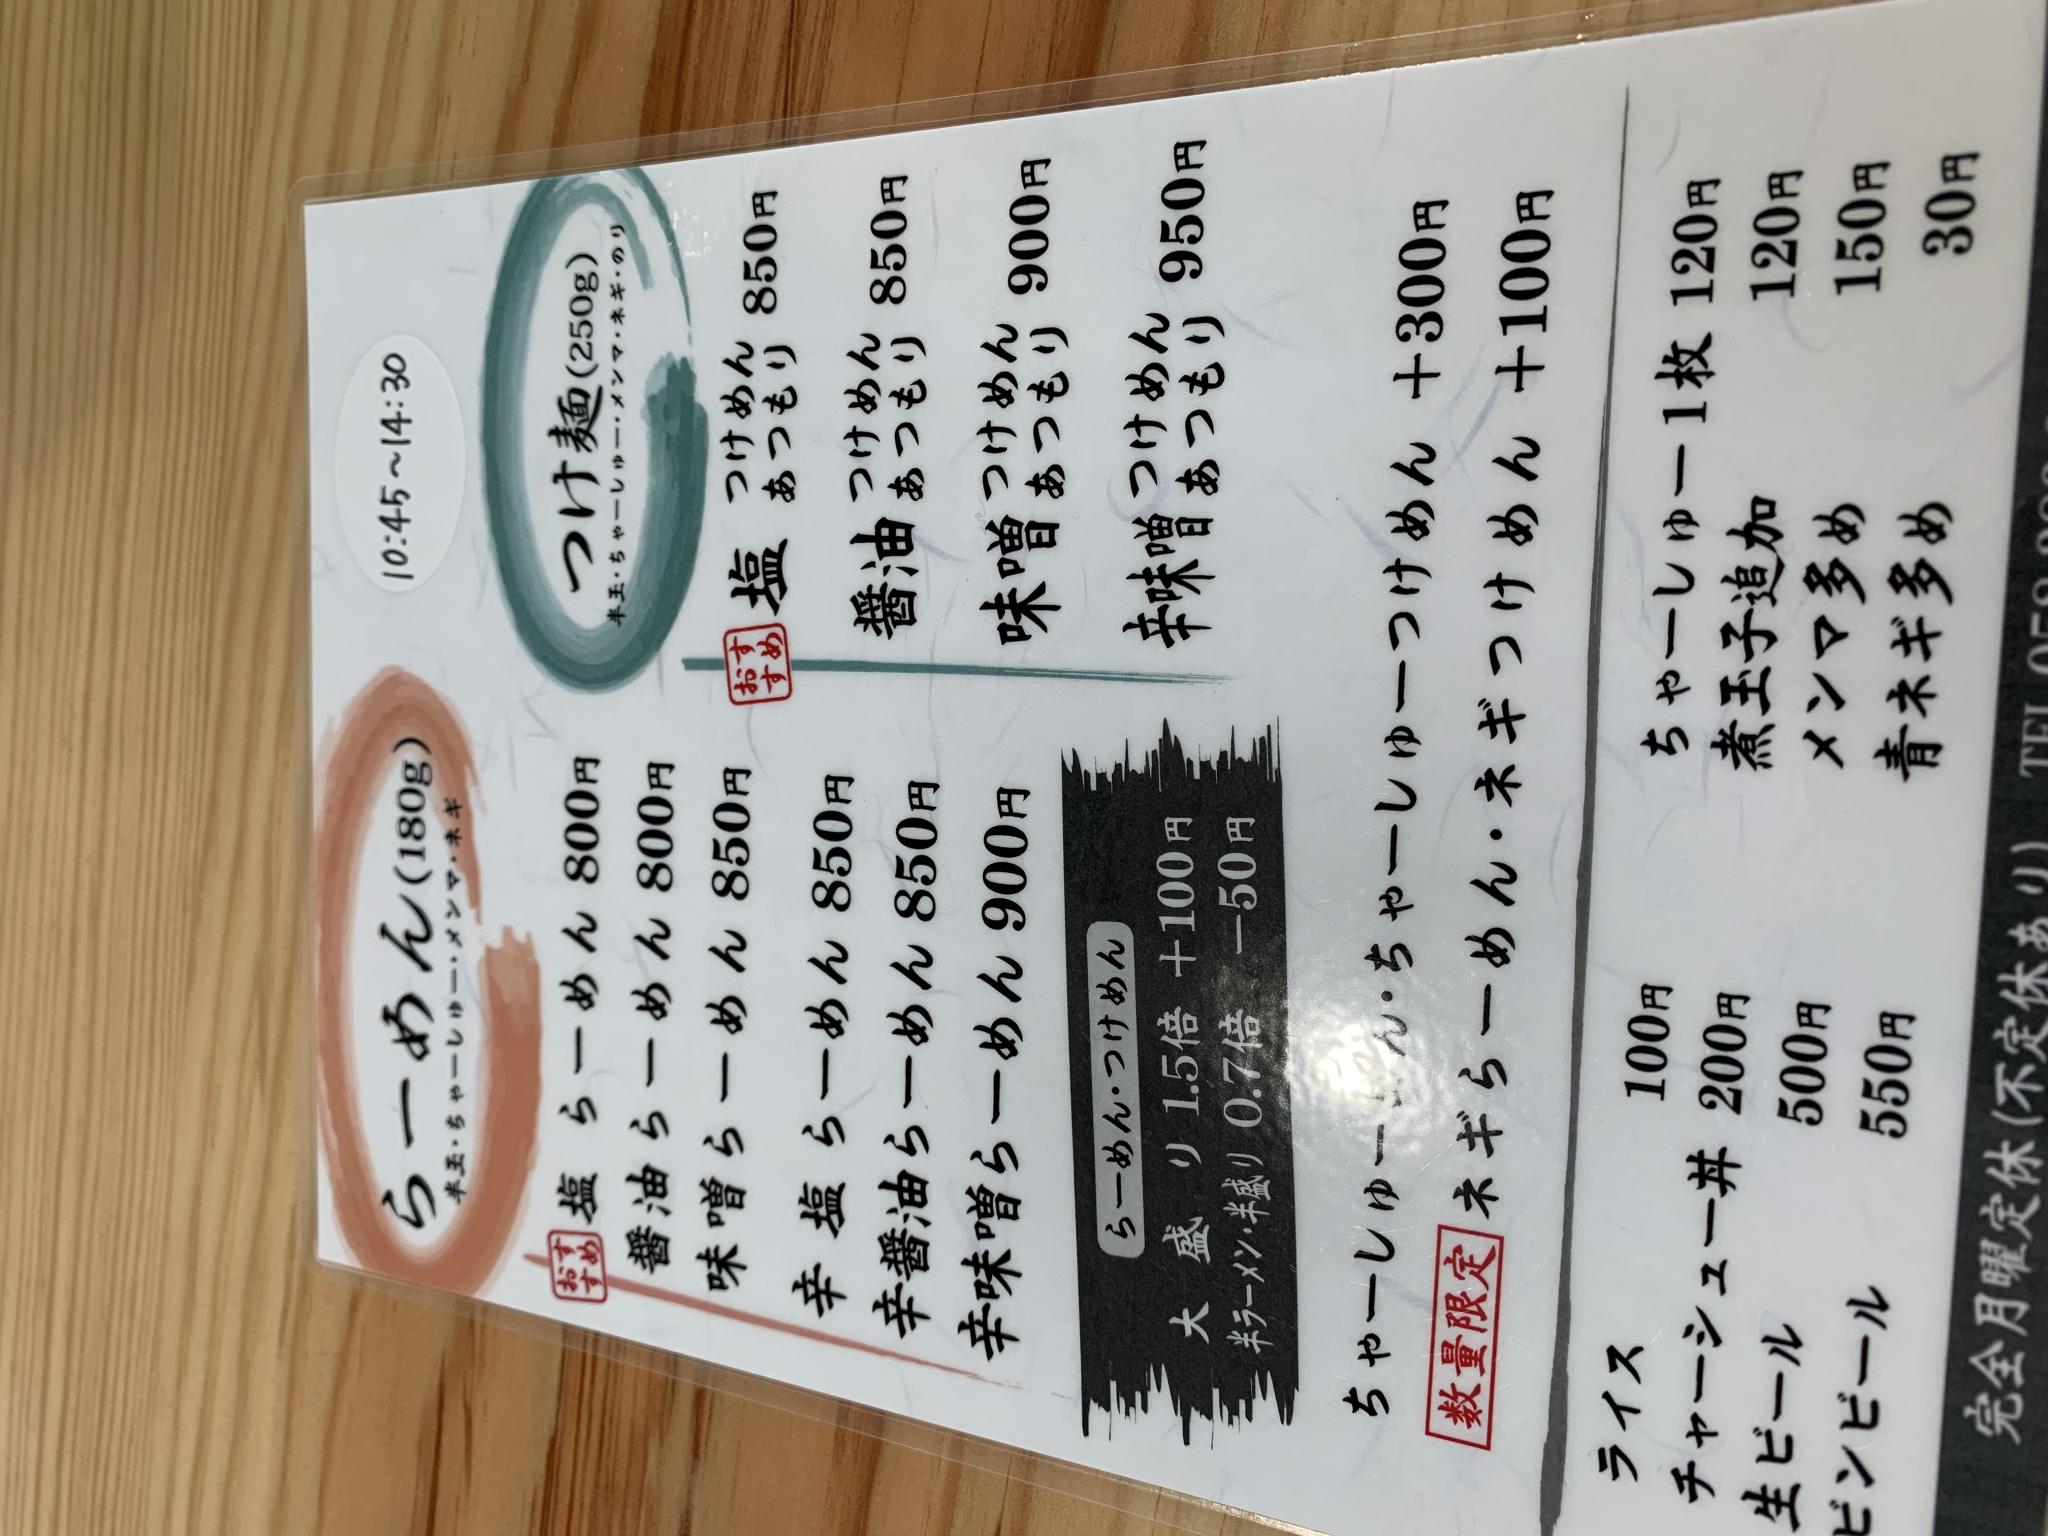 10:45～14:30
らーめん(180g)
半玉・ちゃーしゅー・メンマ・ネギ
おすすめ 塩 らーめん 800円
醤油らーめん 800円
味噌らーめん 850円
辛 塩 らーめん 850円
辛醤油らーめん 850円
辛味噌らーめん 900円
つけ麺(250g)
半玉・ちゃーしゅー・メンマ・ネギ・のり
おすすめ 塩 つけめん あつもり 850円
醤油 つけめん あつもり 850円
味噌 つけめん あつもり 900円
辛味噌 つけめん あつもり 950円
らーめん・つけめん
大 盛 り 1.5倍 ＋100円
半ラーメン・半盛り 0.7倍 －50円
ちゃーしゅーらーめん・ちゃーしゅーつけめん ＋300円
数量限定 ネギらーめん・ネギつけめん ＋100円
ライス 100円
チャーシュー丼 200円
生ビール 500円
ビンビール 550円
ちゃーしゅー1枚 120円
煮玉子追加 120円
メンマ多め 150円
青ネギ多め 30円
完全月曜定休(不定休あり)